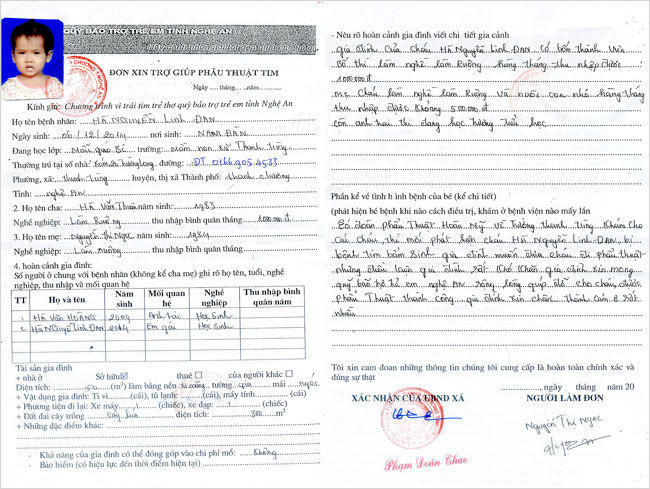 QUỸ BẢO TRỢ TRẺ EM TỈNH NGHỆ AN
ĐƠN XIN TRỢ GIÚP PHẪU THUẬT TIM
Ngày.... tháng....năm.......
Kính gửi: Chương trình vì trái tim trẻ thơ quỹ bảo trợ trẻ em tỉnh Nghệ An
Họ tên bệnh nhân: Hà Nguyễn Linh Đan
Ngày sinh: 06/12/2014 nơi sinh: Nam Đàn
Đang học lớp: Mẫu giáo Bé trường: mầm non xã Thanh Tùng
Thường trú tại số nhà: đường: ĐT 0166.905.4533
Phường, xã: Thanh Tùng huyện, thị xã Thành phố: Thanh Chương
Tỉnh: Nghệ An
2. Họ tên cha: Hà Văn Thuận năm sinh: 1983
Nghề nghiệp: Làm Ruộng thu nhập bình quân tháng 1000.000 đ
3. Họ tên mẹ: Nguyễn Thị Ngọc năm sinh: 1984
Nghề nghiệp: Làm Ruộng thu nhập bình quân tháng
4. hoàn cảnh gia đình:
Số người ở chung với bệnh nhân (không kể cha mẹ) ghi rõ họ tên, tuổi, nghề nghiệp, thu nhập và mối quan hệ
TT Họ và tên Năm sinh Mối quan hệ Nghề nghiệp Thu nhập bình quân năm
1 Hà Văn Hoàng 2009 Anh trai Học Sinh
2 Hà Nguyễn Linh Đan 2014 Em gái Học Sinh
Tài sản gia đình
+ nhà ở Sở hữu thuê của người khác
Diện tích: 50 (m²) làm bằng nền xi măng, tường mái ngói
+ Vật dụng gia đình: Ti vi (cái), tủ lạnh: (cái), máy tính (cái)
+ Phương tiện đi lại: Xe máy 1 (chiếc), xe đạp: 1 (chiếc)
+ Đất đai cây trồng diện tích: 300 m²
+ Những đặc điểm khác:
- Khả năng của gia đình có thể đóng góp vào chi phí mổ: Không
- Bảo hiểm (có hiệu lực đến thời điểm hiện tại)
- Nêu rõ hoàn cảnh gia đình viết chi tiết gia cảnh
gia đình của cháu Hà Nguyễn Linh Đan có bốn thành viên
Bố thì làm nghề làm Ruộng hàng tháng thu nhập được
1000.000 đ
mẹ cháu làm nghề làm Ruộng và nuôi con nhỏ hàng tháng
thu nhập được khoảng 500.000 đ
còn anh hai thì đang học trường tiểu học
Phần kể về tình hình bệnh của bé (kể chi tiết)
(phát hiện bé bệnh khi nào cách điều trị, khám ở bệnh viện nào mấy lần
Có đoàn phẫu thuật Hoàn Mỹ về trường thanh tùng khám cho
các cháu thì mới phát hiện cháu Hà Nguyễn Linh Đan bị
bệnh tim bẩm sinh gia đình muốn đưa cháu đi phẫu thuật
nhưng điều kiện gia đình rất khó khăn gia đình xin mong
quỹ bảo trợ trẻ em nghệ An giúp đỡ cho cháu được
phẫu thuật thành công gia đình xin chân thành cảm ơn rất
nhiều
Tôi xin cam đoan những thông tin chúng tôi cung cấp là hoàn toàn chính xác và
đúng sự thật
......., ngày tháng năm 20
XÁC NHẬN CỦA UBND XÃ NGƯỜI LÀM ĐƠN
Nguyễn Thị Ngọc
Phạm Doãn Chao